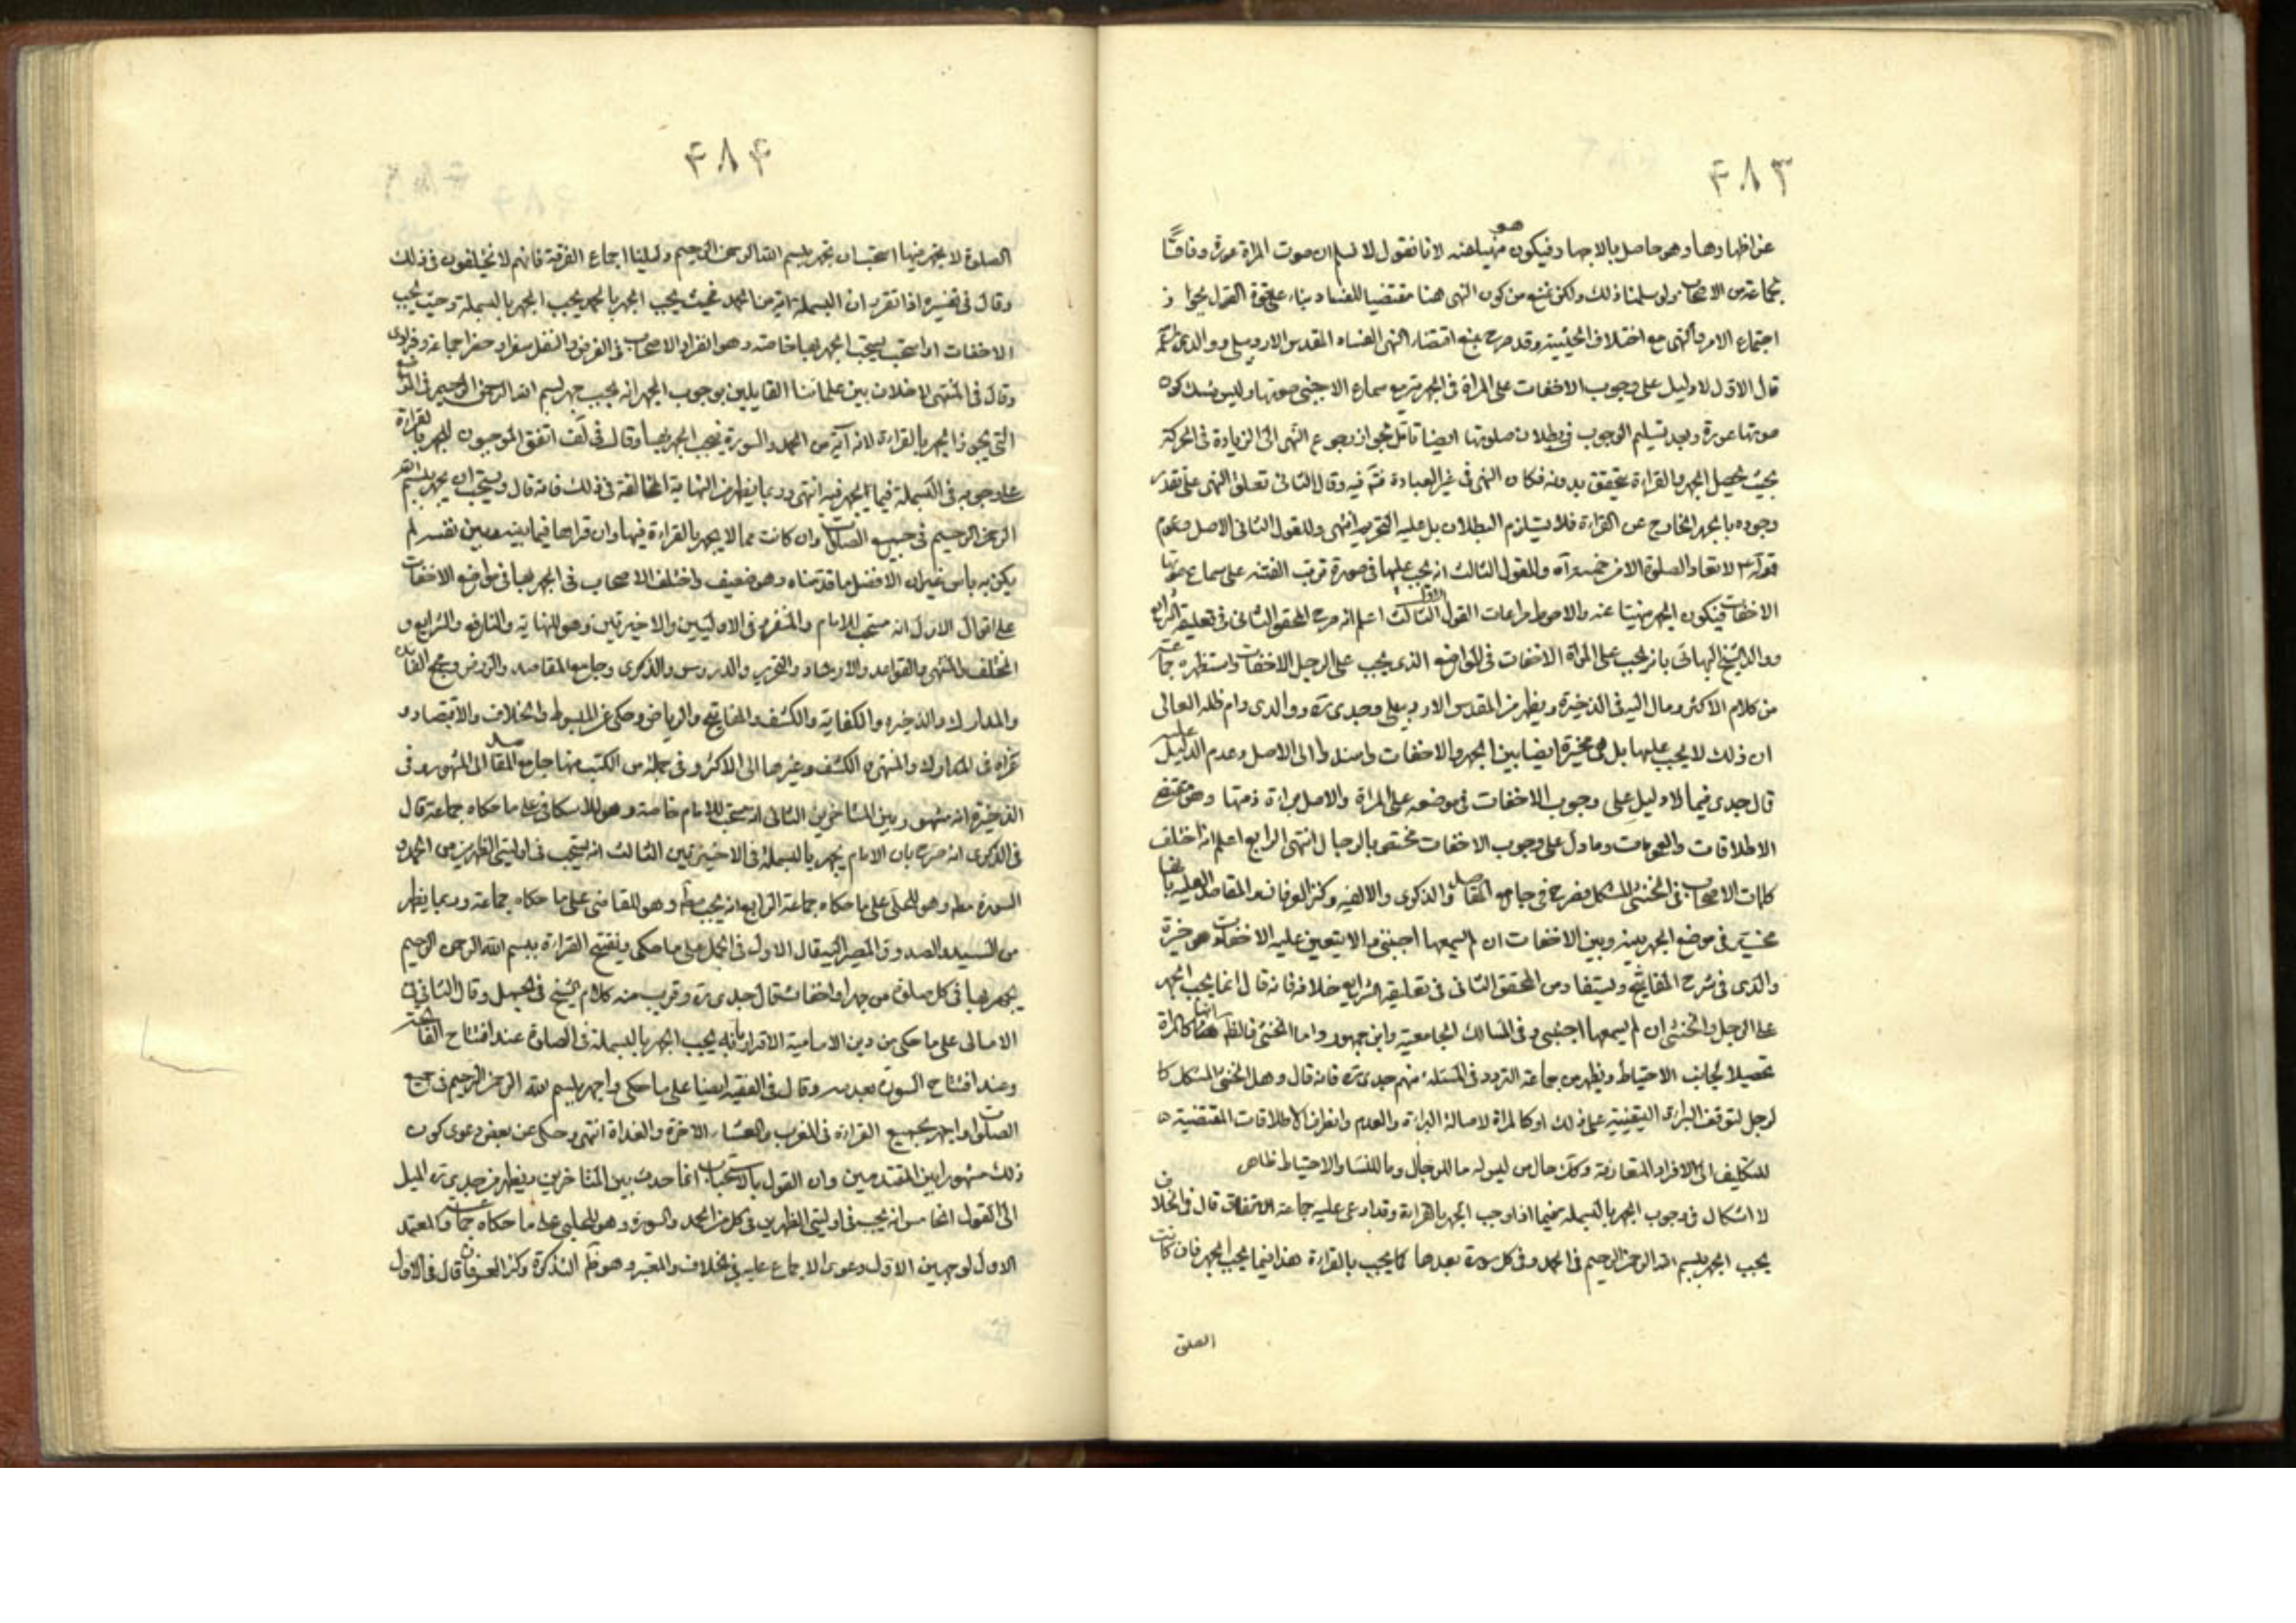 ۴۸۳
عن اظهارها وهو حاصل بالاجهار فيكون منهيا عنه لانا نقول لا نسلم ان صوت المراة عورة وفاقًا
لجماعة من الاصحاب ولو سلمنا ذلك ولكن نمنع من كون النهى هنا مقتضيا للفساد بناء على قوة القول بجواز
اجتماع الامر والنهى مع اختلاف الحيثية وقد صرح بمنع اقتضاء النهى الفساد المقدس الاردبيلى ووالدى
قال الاول لا دليل على وجوب الاخفات على المراة فى الجهرية مع سماع الاجنبى صوتها وليس كون
صوتها عورة وبعد تسليم الوجوب فى بطلان صلوتها ايضا تامل لجواز رجوع النهى الى الزيادة فى الحركة
بحيث يحصل الجهر والقراءة يتحقق بدونه فكان النهى فى غير العبادة فتم فيه وقال الثانى تعلق النهى على تقدير
وجوده بالجهر الخارج عن القراءة فلا يستلزم البطلان بل عليه التحريم انتهى وللقول الثانى الاصل وعموم
قوله ع لا تعاد الصلوة الا من خمسة اه وللقول الثالث انه يجب عليها فى صورة ترتب الفتنة على سماع صوتها
الاخفات فيكون الجهر منهيا عنه والاحوط مراعات القول الاول الثالث اعلم انه صرح المحقق الثانى فى تعليقه الشرايع
ووالد الشيخ البهائى بانه يجب على المراة الاخفات فى المواضع الذى يجب على الرجل الاخفات واستظهره جماعة
من كلام الاكثر ومال اليه فى الذخيرة ويظهر من المقدس الاردبيلى وجدى ره ووالدى دام ظله العالى
ان ذلك لا يجب عليها بل هى مخيرة ايضا بين الجهر والاخفات واستدلوا الى الاصل وعدم الدليل عليه
قال جدى فيما لا دليل على وجوب الاخفات فى موضعه على المراة والاصل براءة ذمتها وهو مقتضى
الاطلاقات والعمومات وما دل على وجوب الاخفات مختص بالرجال انتهى الرابع اعلم انه اختلف
كلمات الاصحاب فى الخنثى المشكل فصرح فى جامع المقاصد والذكرى والالفيه وكنز العرفان والمقاصد العلية بانها
مخيرة فى موضع الجهر بينه وبين الاخفات ان لم يسمعها اجنبى والا يتعين عليه الاخفات وهو خيرة
والدى فى شرح المفاتيح ويستفاد من المحقق الثانى فى تعليقه الشرايع خلافه فانه قال انما يجب الجهر
على الرجل والخنثى ان لم يسمعها اجنبى وفى المسالك الجامعية وابن جمهور واما الخنثى فالظ انها كالمراة
تحصيلا لجانب الاحتياط ويظهر من جماعة التردد فى المسئلة منهم جدى ره فانه قال وهل الخنثى المشكل كا
لرجل لتوقف البراءة اليقينية على ذلك او كالمراة لاصالة البراءة والعدم وانصراف الاطلاقات المقتضية
للتكليف الى الافراد المتعارفة وكك حال من ليس له ما للرجال وما للنساء والاحتياط ظاهر
لا اشكال فى وجوب الجهر بالبسملة فيما اذا وجب الجهر بالقراءة وقد ادعى عليه جماعة الاتفاق قال فى الخلاف
يجب الجهر ببسم الله الرحمن الرحيم فى الحمد وفى كل سورة بعدها كما يجب بالقراءة هذا فيما يجب الجهر فان كانت
الصلوة
۴۸۴
الصلوة لا يجهر فيها استحب ان يجهر ببسم الله الرحمن الرحيم دليلنا اجماع الفرقة فانهم لا يختلفون فى ذلك
وقال فى تفسيره اذا تقرر ان البسملة اية من الحمد فحيث يجب الجهر بالحمد يجب الجهر بالبسملة وحيث يجب
الاخفات او استحب يستحب الجهر بها خاصة وهو انفراد الاصحاب فى الفرض والنفل سفرا وحضرا جماعة وفرادى
وقال فى المنتهى لا خلاف بين علمائنا القايلين بوجوب الجهر انه يجب جهر بسم الله الرحمن الرحيم فى المواضع
التى يجوز الجهر بالقراءة لانه آية من الحمد والسورة فيجب الجهر بها وقال فى كشف اتفق الموجبون للجهر بالقراءة
على وجوبه فى البسملة فيما يجهر فيه انتهى وربما يظهر من النهاية المخالفة فى ذلك فانه قال ويستحب ان يجهر ببسم الله
الرحمن الرحيم فى جميع الصلوات وان كانت مما لا يجهر بالقراءة فيها وان قراها فيما بينه وبين نفسه لم
يكن به باس غير ان الافضل ما قدمناه وهو ضعيف واختلف الاصحاب فى الجهر بها فى مواضع الاخفات
على اقوال الاول انه مستحب للامام والمنفرد فى الاوليين والاخيرتين وهو للنهاية والنافع والشرايع و
المختلف والمنتهى والقواعد والارشاد والتحرير والدروس والذكرى وجامع المقاصد والروض ومجمع الفائدة
والمدارك والذخيرة والكفاية والكشف والمفاتيح والرياض وحكى عن المبسوط والخلاف والاقتصاد و
عزاه فى المدارك والمنتهى والكشف وغيرها الى الاكثر وفى جملة من الكتب منها جامع المقاصد الى المشهور وفى
الذخيرة انه مشهور بين المتاخرين الثانى انه يستحب للامام خاصة وهو للاسكافى على ما حكاه جماعة قال
فى الذكرى انه صرح بان الامام يجهر بالبسملة فى الاخيرتين الثالث انه يستحب فى اوليتى الظهرين من الحمد و
السورة مط وهو للحلى على ما حكاه جماعة الرابع انه يجب مط وهو للقاضى على ما حكاه جماعة وربما يظهر
من السيد والصدوق المصير اليه قال الاول فى الجمل على ما حكى ويفتتح القراءة ببسم الله الرحمن الرحيم
يجهر بها فى كل صلوة من جهر او اخفات قال جدى ره وقريب منه كلام الشيخ فى الجمل وقال الثانى فى
الامالى على ما حكى من دين الامامية الاقرار بانه يجب الجهر بالبسملة فى الصلوة عند افتتاح الفاتحة
وعند افتتاح السورة بعدها وقال فى الفقيه ايضا على ما حكى واجهر ببسم الله الرحمن الرحيم فى جميع
الصلوات واجهر بجميع القراءة فى المغرب والعشاء الاخرة والغداة انتهى وحكى عن بعض دعوى كون
ذلك مشهورا بين المتقدمين وان القول بالاستحباب انما حدث بين المتاخرين ويظهر من جدى ره الميل
الى القول الخامس انه يجب فى اوليتى الظهرين فى كل من الحمد والسورة وهو للحلبى على ما حكاه جماعة والمعتمد
الاول لوجهين الاول دعوى الاجماع عليه فى الخلاف والمعتبر وهو ظ التذكرة وكنز العرفان قال فى الاول